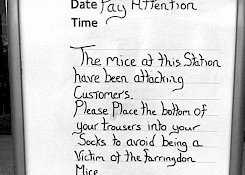 Date Pay Attention
Time
The mice at this Station
have been attacking
Customers.
Please Place the bottom of
your trousers into your
Socks to avoid being a
Victim of the Farringdon
Mice